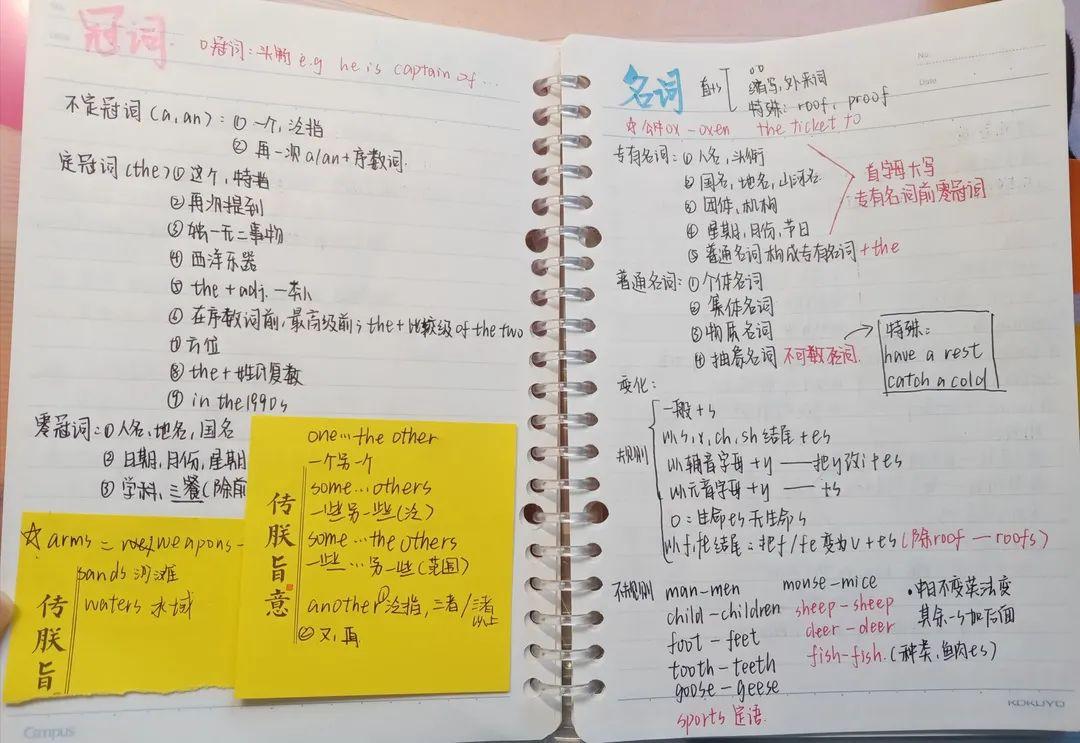 冠词
0冠词:头衔 e.g he is captain of ...
不定冠词(a,an):① 一个,泛指
② 再一次 a/an+序数词
定冠词(the)① 这个,特指
② 再次提到
③ 独一无二事物
④ 西洋乐器
⑤ the + adj. 一类人
⑥ 在序数词前,最高级前;the+比较级 of the two
⑦ 方位
⑧ the+姓氏复数
⑨ in the 1990s
零冠词:① 人名,地名,国名
② 日期,月份,星期
③ 学科,三餐(除前
☆ arms = weapons
sands 沙滩
waters 水域
传朕旨
one...the other
一个另一个
some...others
一些另一些(泛)
some...the others
一些...另一些(范围)
another① 泛指,三者/三者以上
② 又,再
传朕旨意
Campus
No.
Date
名词
直+s
缩写,外来词
特殊: roof, proof
☆公牛ox-oxen the ticket to
专有名词:① 人名,头衔
② 国名,地名,山河名
③ 团体,机构
④ 星期,月份,节日
⑤ 普通名词构成专有名词+the
首字母大写
专有名词前零冠词
普通名词:① 个体名词
② 集体名词
③ 物质名词
④ 抽象名词 不可数名词
特殊:
have a rest
catch a cold
变化:
规则
一般+s
以s,x,ch,sh结尾+es
以辅音字母+y——把y改i+es
以元音字母+y——+s
o:生命es无生命s
以f,fe结尾:把f/fe变为v+es(除roof—roofs)
不规则 man-men mouse-mice
child-children sheep-sheep
foot-feet deer-deer
tooth-teeth fish-fish.(种类,鱼肉es)
goose-geese
sports 定语
·中日不变英法变
其余-s加后面
KOKUYO